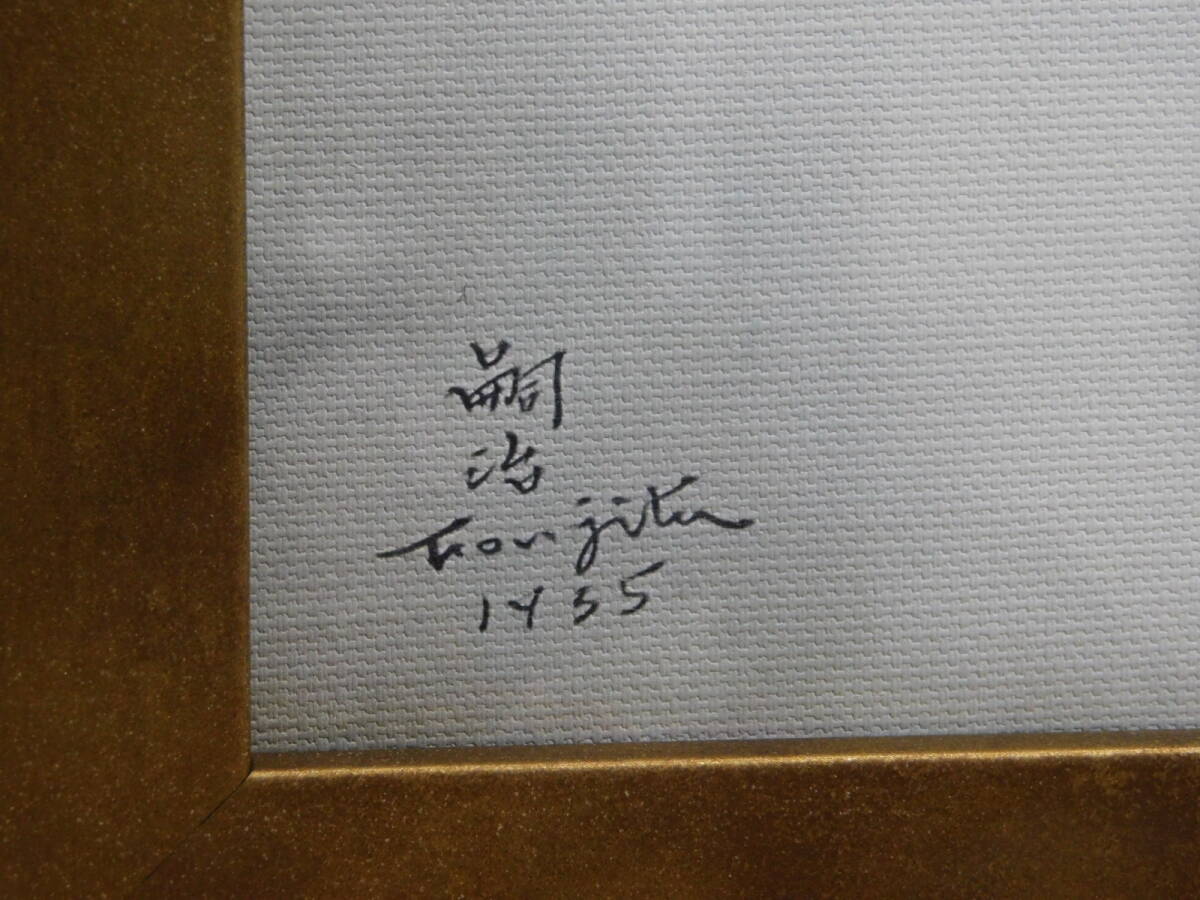 嗣
治
Foujita
1935